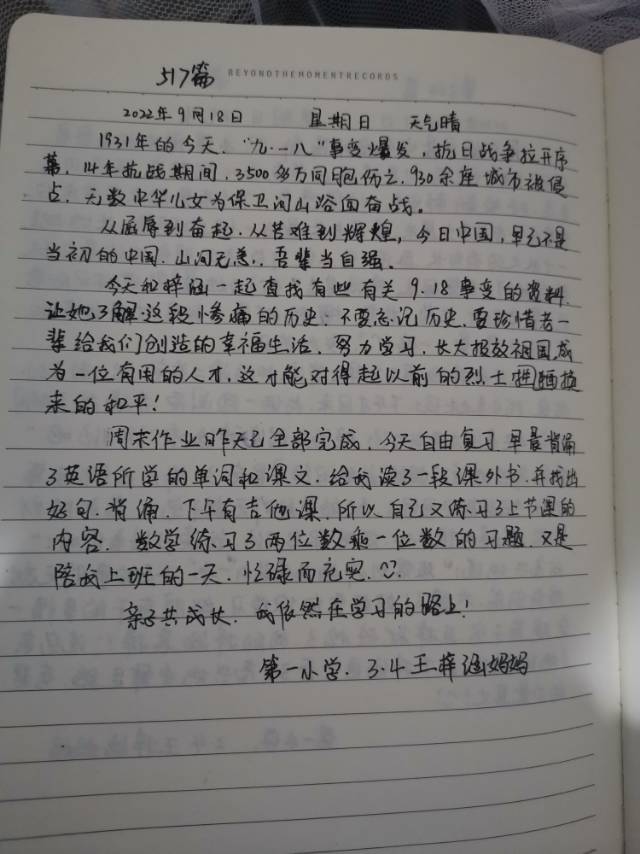 517篇 BEYONDTHEMOMENTRECORDS
2022年9月18日 星期日 天气晴
1931年的今天,“九·一八”事变爆发,抗日战争拉开序
幕,14年抗战期间,3500多万同胞伤亡,930余座城市被侵
占,无数中华儿女为保卫河山浴血奋战。
从屈辱到奋起,从苦难到辉煌,今日中国,早已不是
当初的中国,山河无恙,吾辈当自强。
今天和梓涵一起查找有些有关9.18事变的资料,
让她了解这段惨痛的历史:不要忘记历史,要珍惜老一
辈给我们创造的幸福生活,努力学习,长大报效祖国,成
为一位有用的人才,这才能对得起以前的烈士
来的和平!
周末作业昨天已全部完成,今天自由复习,早晨背诵
了英语所学的单词和课文,给我读了一段课外书,并找出
好句,背诵,下午有吉他课,所以自己又练习了上节课的
内容,数学练习了两位数乘一位数的习题,又是
陪我上班的一天,忙碌而充实。
亲子共成长,我依然在学习的路上!
第一小学.3.4王梓涵妈妈